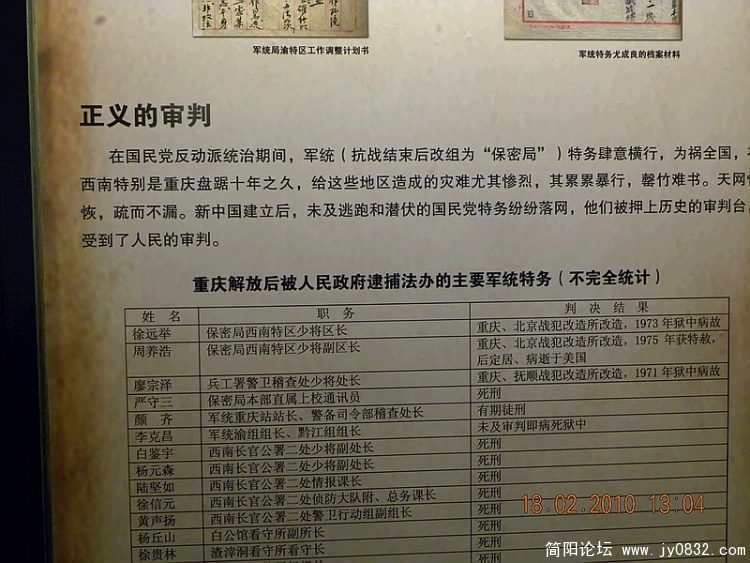 军统局渝特区工作调整计划书
军统特务尤成良的档案材料
正义的审判
在国民党反动派统治期间，军统（抗战结束后改组为“保密局”）特务肆意横行，为祸全国，
西南特别是重庆盘踞十年之久，给这些地区造成的灾难尤其惨烈，其累累暴行，罄竹难书。天网
恢，疏而不漏。新中国建立后，未及逃跑和潜伏的国民党特务纷纷落网，他们被押上历史的审判台，
受到了人民的审判。
重庆解放后被人民政府逮捕法办的主要军统特务（不完全统计）
姓 名 职 务 判 决 结 果
徐远举 保密局西南特区少将区长 重庆、北京战犯改造所改造，1973年狱中病故
周养浩 保密局西南特区少将副区长 重庆、北京战犯改造所改造，1975年获特赦，
后定居、病逝于美国
廖宗泽 兵工署警卫稽查处少将处长 重庆、抚顺战犯改造所改造，1971年狱中病故
严守三 保密局本部直属上校通讯员 死刑
颜 齐 军统重庆站站长、警备司令部稽查处长 有期徒刑
李克昌 军统渝组组长、黔江组组长 未及审判即病死狱中
白鉴宇 西南长官公署二处少将副处长 死刑
杨元森 西南长官公署二处少将副处长 死刑
陆坚如 西南长官公署二处情报课长 死刑
徐信元 西南长官公署二处侦防大队附、总务课长 死刑
黄声扬 西南长官公署二处警卫行动组副组长 死刑
杨丘山 白公馆看守所副所长 死刑
徐贵林 渣滓洞看守所看守长 死刑
18.02.2010 13:04
简阳论坛 www.jy0832.com